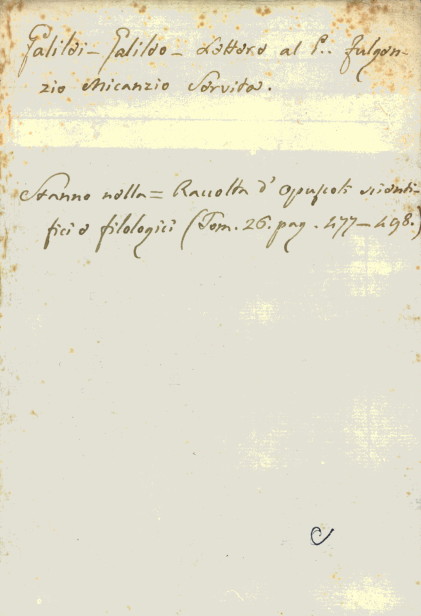 Galilei - Galileo - Lettere al P.. Fulgen-
zio Micanzio Servita.
Stanno nella = Raccolta d' opuscoli scienti-
fici e filologici (Tom. 26. pag. 477-498.)